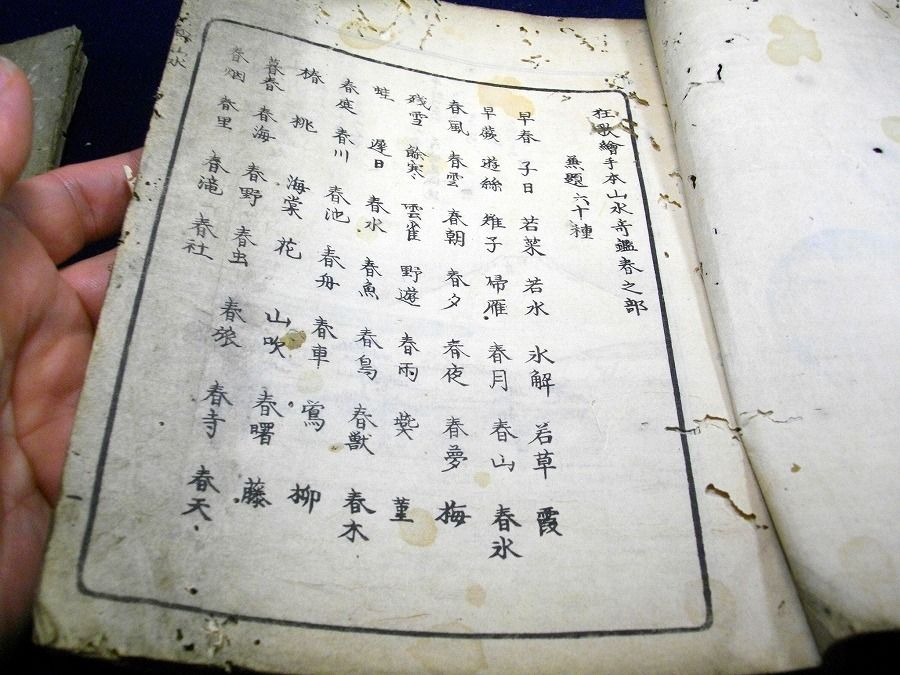 狂歌繪手本山水奇鑑春之部
兼題六十種
早春 子日 若菜 若水 氷解 若草 霞
早蕨 遊絲 雉子 帰雁 春月 春山 春氷
春風 春雲 春朝 春夕 春夜 春夢 梅
残雪 餘寒 雲雀 野遊 春雨 菫
蛙 遅日 春水 春魚 春鳥 春獣 春木
春庭 春川 春池 春舟 春車 鴬 柳
椿 桃 海棠 花 山吹 春曙 藤
暮春 春海 春野 春虫 春旅 春寺 春天
春烟 春里 春滝 春社
山水